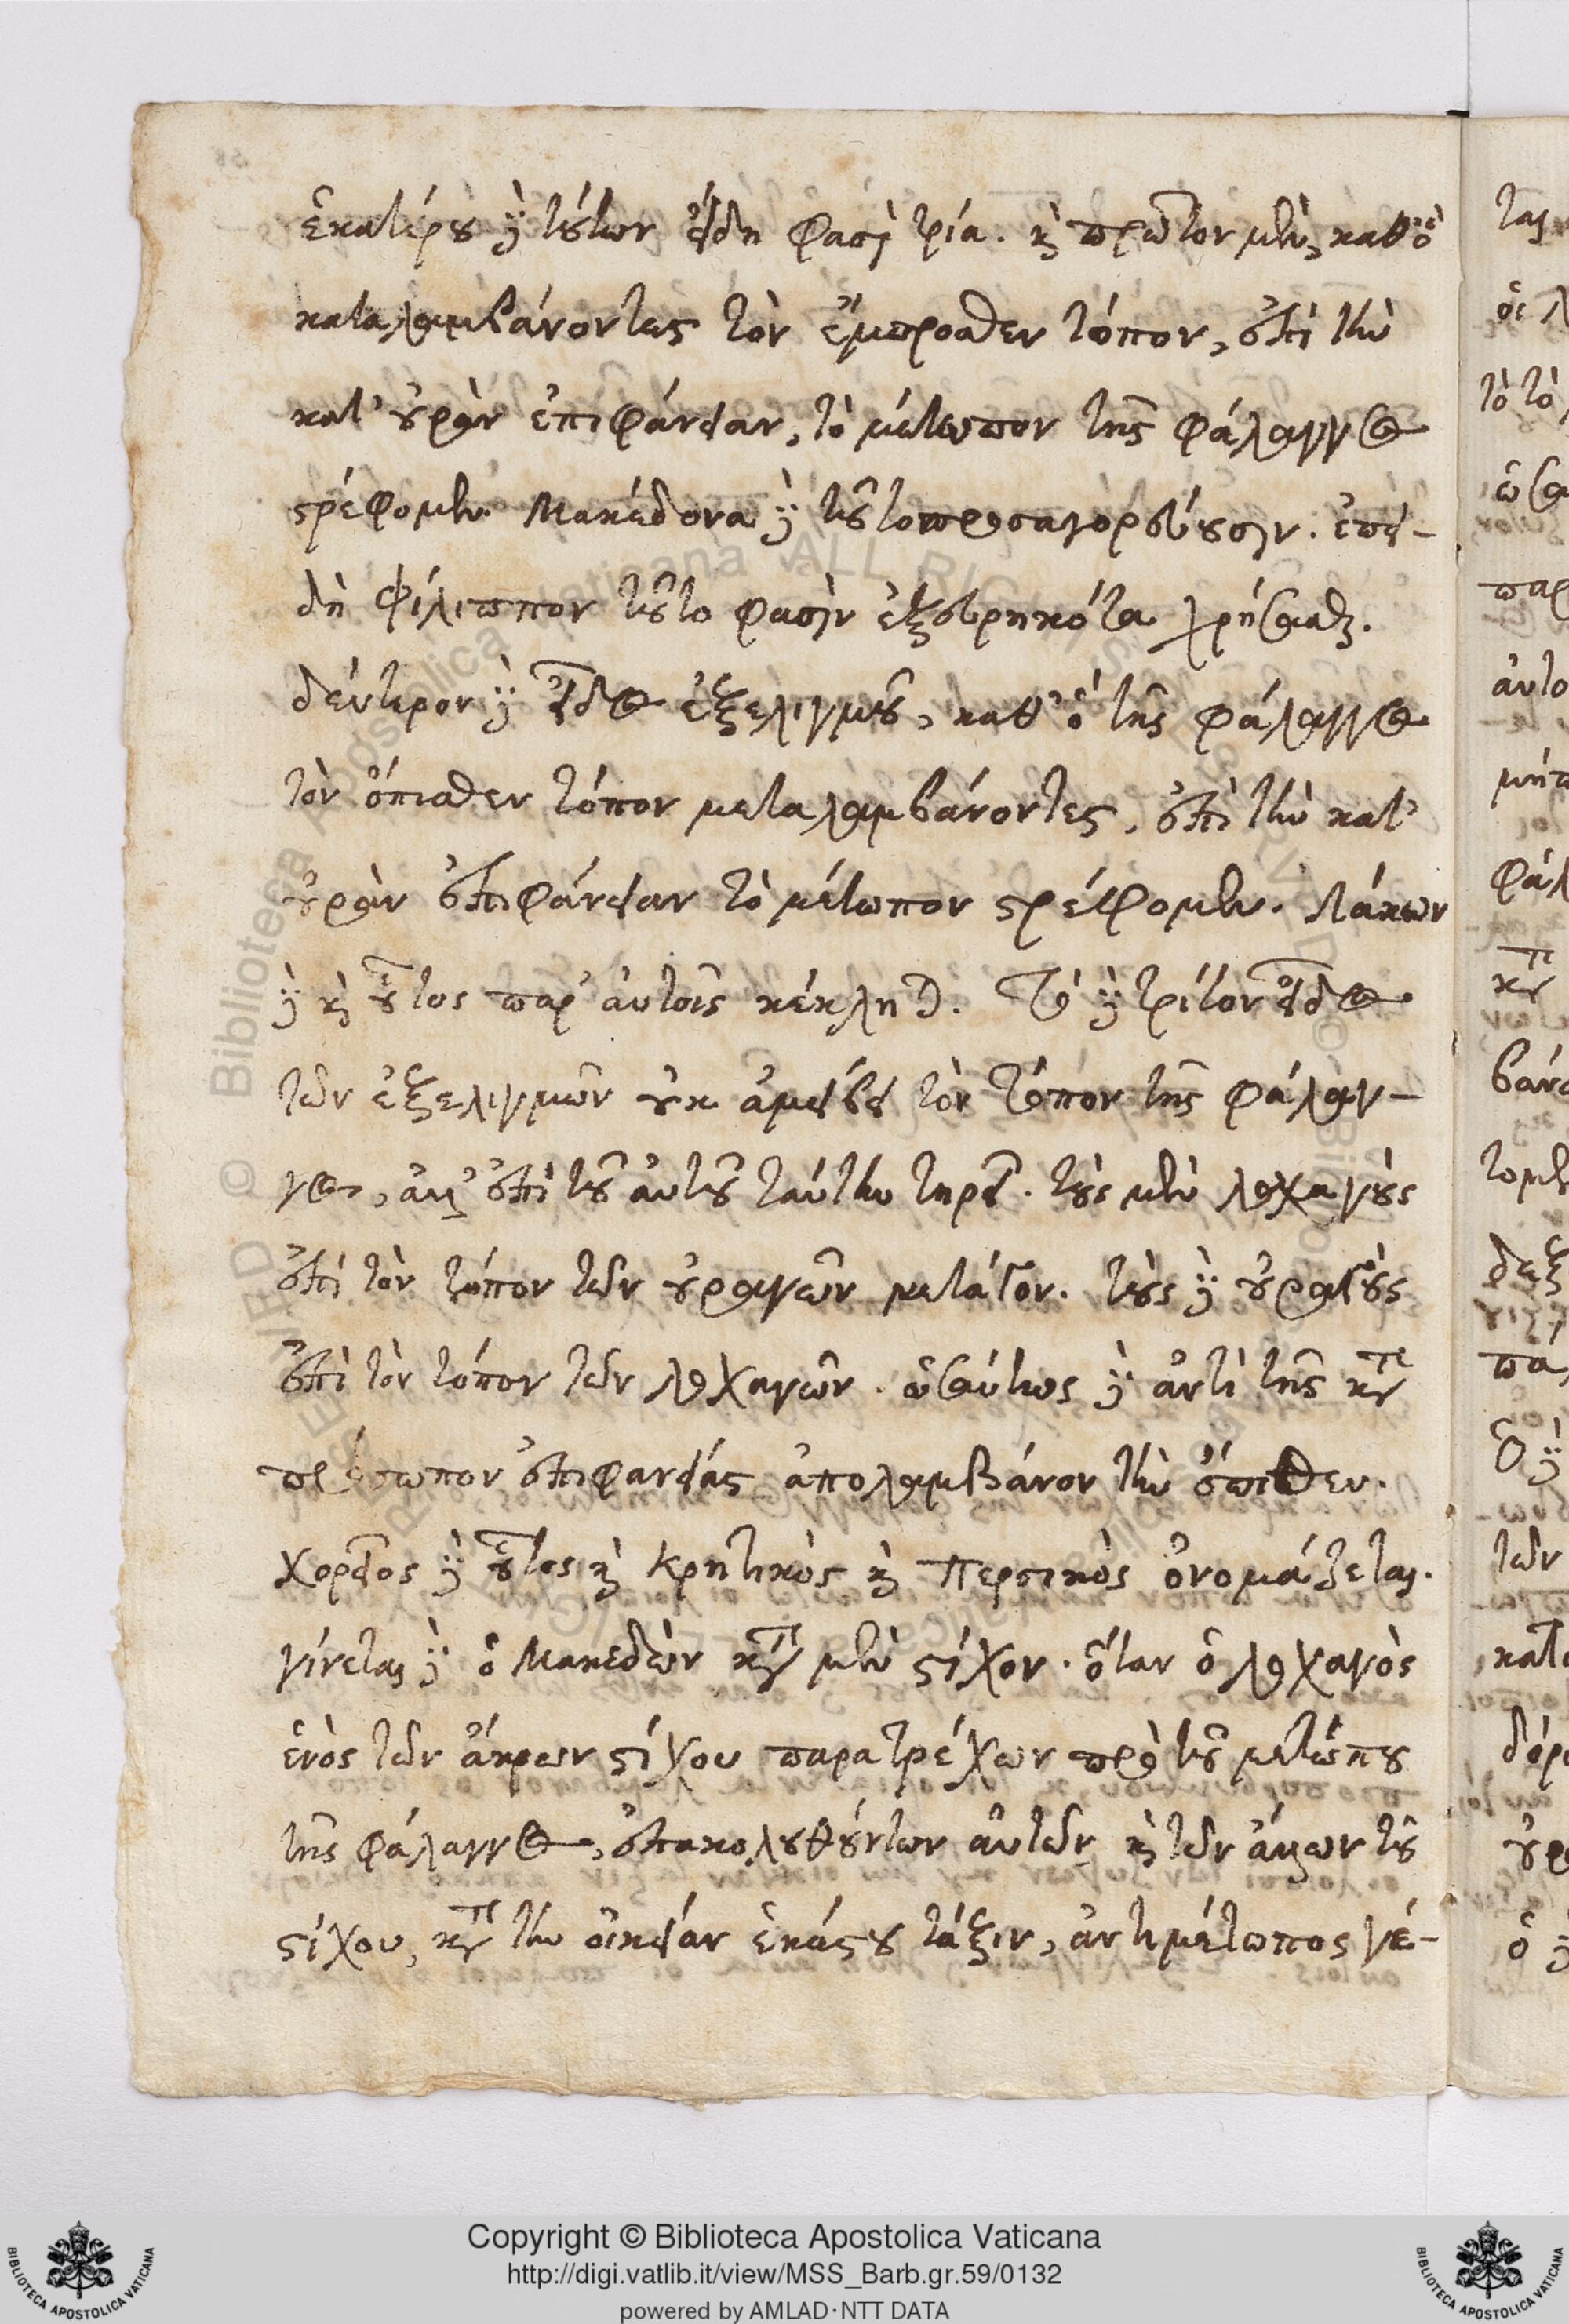 ἑκατέρου δὲ τούτων εἴδη φασὶ τρία. καὶ πρῶτον μὲν, καθ' ὃ
καταλαμβάνοντες τὸν ἔμπροσθεν τόπον, ἐπὶ τὴν
κατ' οὐρὰν ἐπιφάνειαν, τὸ μέτωπον τῆς φάλαγγος
στρέφομεν. Μακεδόνα δὲ τοῦτο προσαγορεύουσιν. ἐπει-
δὴ Φίλιππον τοῦτο φασὶν ἐξευρηκότα χρήσασθαι.
δεύτερον δὲ εἶδος ἐξελιγμοῦ, καθ' ὃ τῆς φάλαγγος
τὸν ὄπισθεν τόπον μεταλαμβάνοντες, ἐπὶ τὴν κατ'
οὐρὰν ἐπιφάνειαν τὸ μέτωπον στρέφομεν. Λάκων
δὲ καὶ οὗτος παρ' αὐτοῖς κέκληται. Τὸ δὲ τρίτον εἶδος
τῶν ἐξελιγμῶν οὐκ ἀμείβει τὸν τόπον τῆς φάλαγ-
γος, ἀλλ' ἐπὶ τοῦ αὐτοῦ ταύτην τηρεῖ. τοὺς μὲν λοχαγοὺς
ἐπὶ τὸν τόπον τῶν οὐραγῶν μετάγον. τοὺς δὲ οὐραγοὺς
ἐπὶ τὸν τόπον τῶν λοχαγῶν. ὡσαύτως δὲ ἀντὶ τῆς κατὰ
πρόσωπον ἐπιφανείας ἀπολαμβάνον τὴν ὄπισθεν.
χορεῖος δὲ οὗτος καὶ Κρητικὸς καὶ Περσικὸς ὀνομάζεται.
γίνεται δὲ ὁ Μακεδὼν κατὰ μὲν στίχον. ὅταν ὁ λοχαγὸς
ἑνὸς τῶν ἄκρων στίχου παρατρέχων πρὸ τοῦ μετώπου
τῆς φάλαγγος, ἐπακολουθούντων αὐτῶν καὶ τῶν ἄλλων τοῦ
στίχου, κατὰ τὴν οἰκείαν ἑκάστου τάξιν, ἀντιμέτωπος γέ-